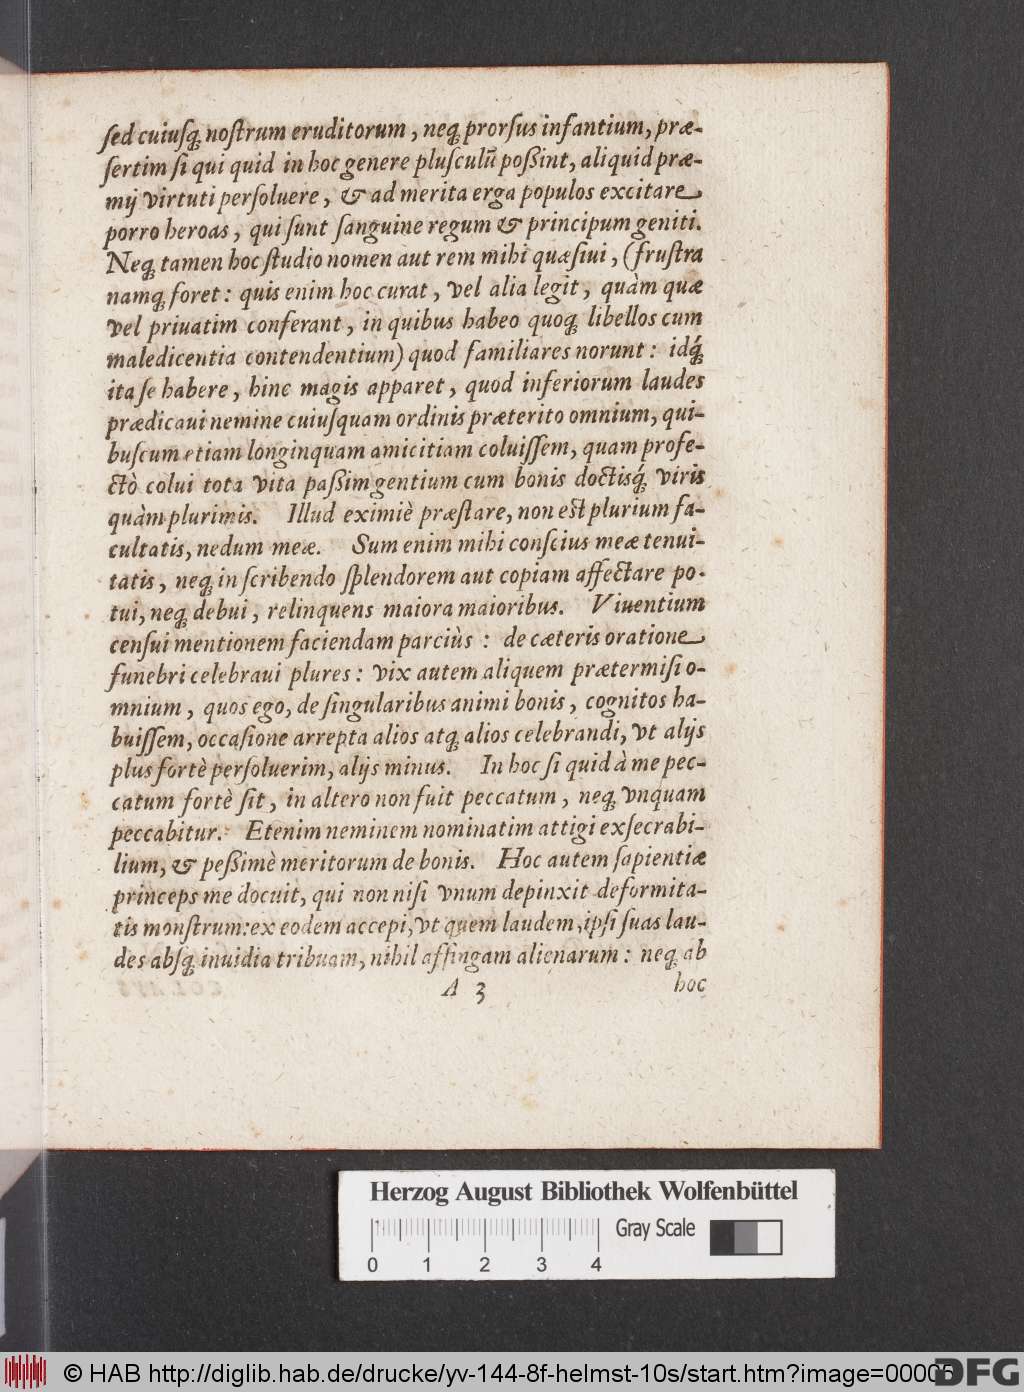 ſed cuiuſq́; noſtrum eruditorum, neq; prorſus infantium, præ-
ſertim ſi qui quid in hoc genere pluſculũ poßint, aliquid præ-
mij virtuti perſoluere, & ad merita erga populos excitare
porro heroas, qui ſunt ſanguine regum & principum geniti.
Neq; tamen hoc ſtudio nomen aut rem mihi quæſiui, (fruſtra
namq; foret: quis enim hoc curat, vel alia legit, quàm quæ
vel priuatim conferant, in quibus habeo quoq; libellos cum
maledicentia contendentium) quod familiares norunt: idq́;
ita ſe habere, hinc magis apparet, quod inferiorum laudes
prædicaui nemine cuiuſquam ordinis præterito omnium, qui-
buſcum etiam longinquam amicitiam coluiſſem, quam profe-
ctò colui tota vita paßim gentium cum bonis doctisq́; viris
quàm plurimis. Illud eximiè præſtare, non eſt plurium fa-
cultatis, nedum meæ. Sum enim mihi conſcius meæ tenui-
tatis, neq; in ſcribendo ſplendorem aut copiam affectare po-
tui, neq; debui, relinquens maiora maioribus. Viuentium
cenſui mentionem faciendam parciùs: de cæteris oratione
funebri celebraui plures: vix autem aliquem prætermiſi o-
mnium, quos ego, de ſingularibus animi bonis, cognitos ha-
buiſſem, occaſione arrepta alios atq; alios celebrandi, vt alijs
plus fortè perſoluerim, alijs minus. In hoc ſi quid à me pec-
catum fortè ſit, in altero non fuit peccatum, neq; vnquam
peccabitur. Etenim neminem nominatim attigi exſecrabi-
lium, & peßimè meritorum de bonis. Hoc autem ſapientiæ
princeps me docuit, qui non niſi vnum depinxit deformita-
tis monſtrum: ex eodem accepi, vt quem laudem, ipſi ſuas lau-
des abſq; inuidia tribuam, nihil affingam alienarum: neq; ab
A 3 hoc
Herzog August Bibliothek Wolfenbüttel
Gray Scale
0 1 2 3 4
© HAB http://diglib.hab.de/drucke/yv-144-8f-helmst-10s/start.htm?image=00005
DFG